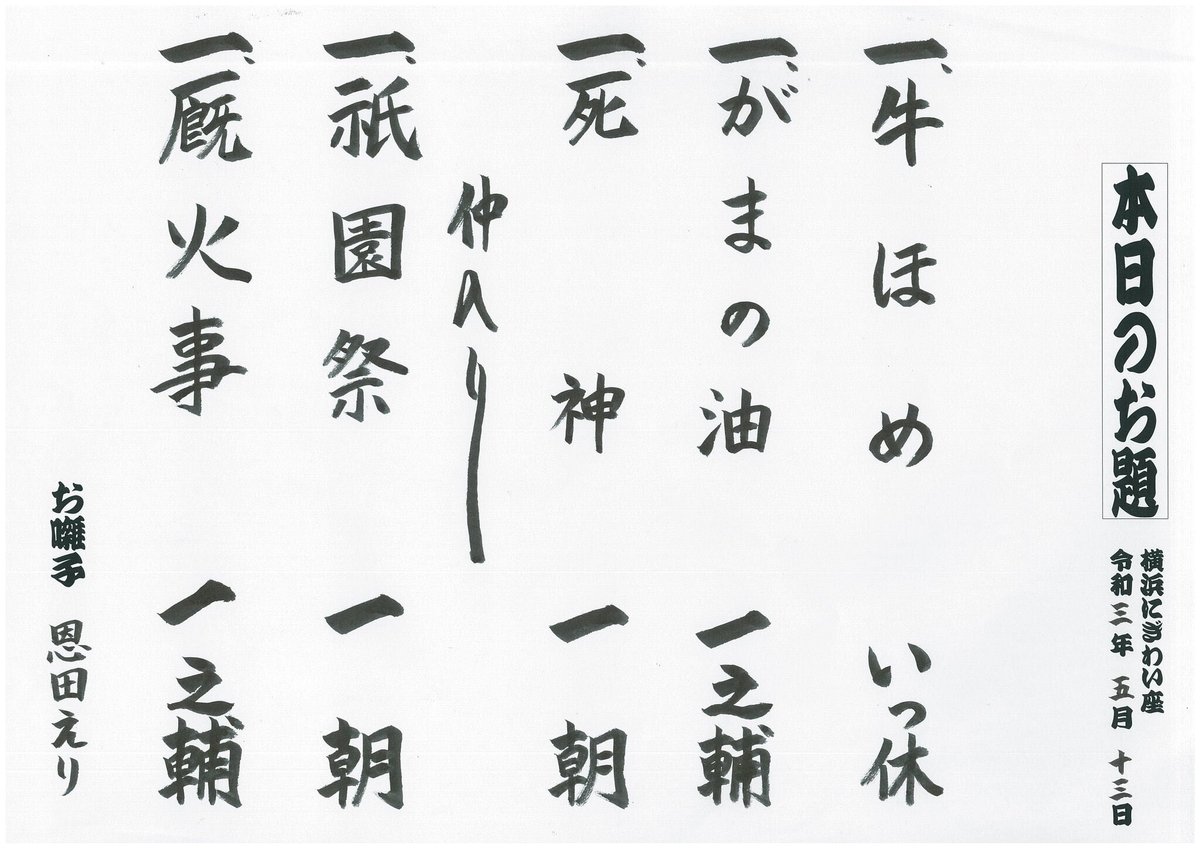 本日のお題
横浜にぎわい座
令和三年 五月 十三日
一、牛ほめ いっ休
一、がまの油 一之輔
一、死神 一朝
仲入り
一、祇園祭 一朝
一、厩火事 一之輔
お囃子 恩田えり